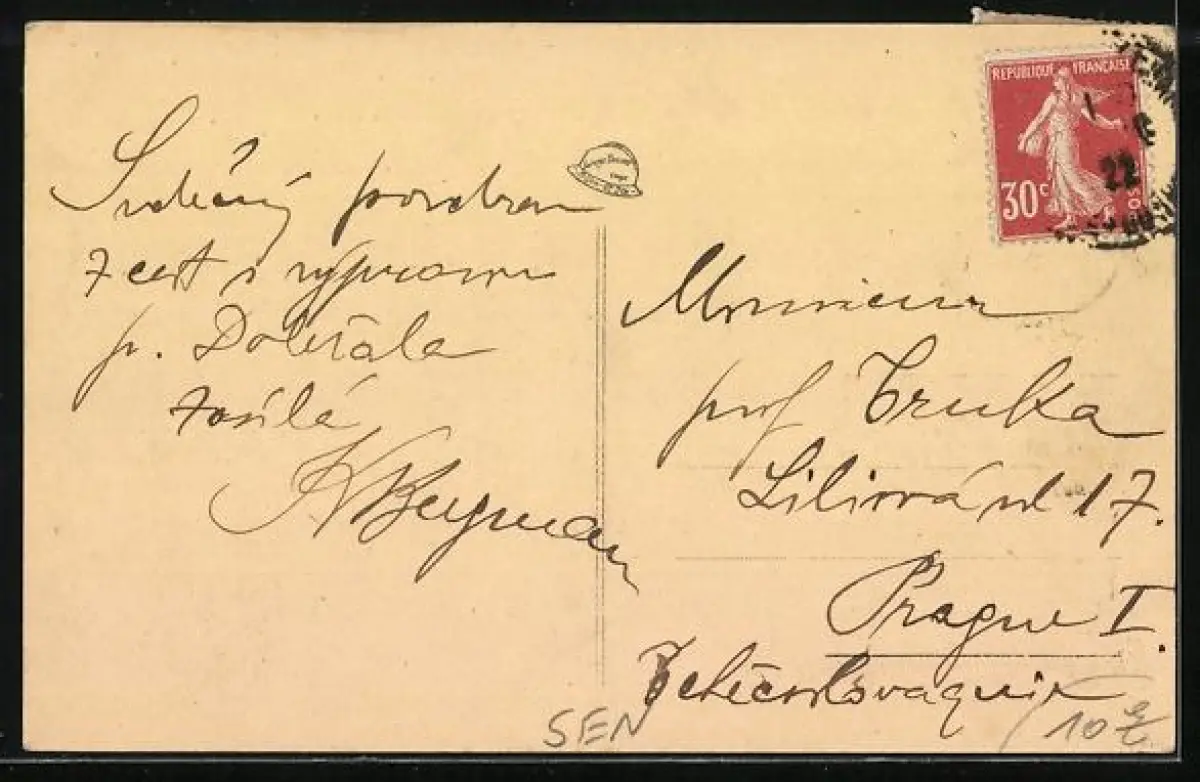 Srdečný pozdrav
z cest s výpravou
p. Doležala
zasílá
KBergman
REPUBLIQUE FRANÇAISE
30c
22
Monsieur
prof Truka
Liliová ul 17.
Prague I.
Tchécoslovaquie
SEN
10